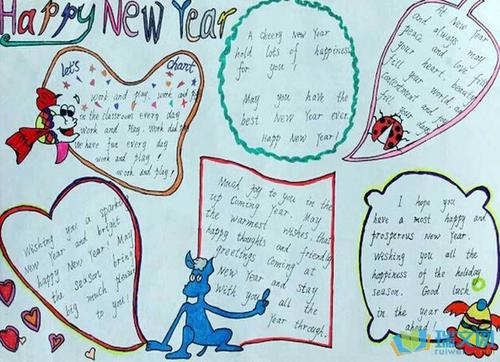 Happy NEW Year
let's chant
work and play, work and play
in the classroom every day
work and play. Work and play
we have fun every day
work and play!
work and play!
A cheery New Year
hold lots of happiness
for you!
May you have the
best New Year ever.
Happy New Year!
At New Year
and always, may
peace and love fill
your heart, beauty
fill your world, and
contentment and joy
fill your
Wishing you a sparkling
New Year and bright
happy New Year! May
the season bring
big much pleasure
to you!
Much joy to you in the
up Coming Year. May
the warmest wishes, that
happy thoughts and friendly
greetings coming at
New Year and stay
With you all the
Year through.
I hope you
have a most happy and
prosperous New Year.
Wishing you all the
happiness of the holiday
season. Good luck
in the year
ahead!
瑞文网
ruiwen